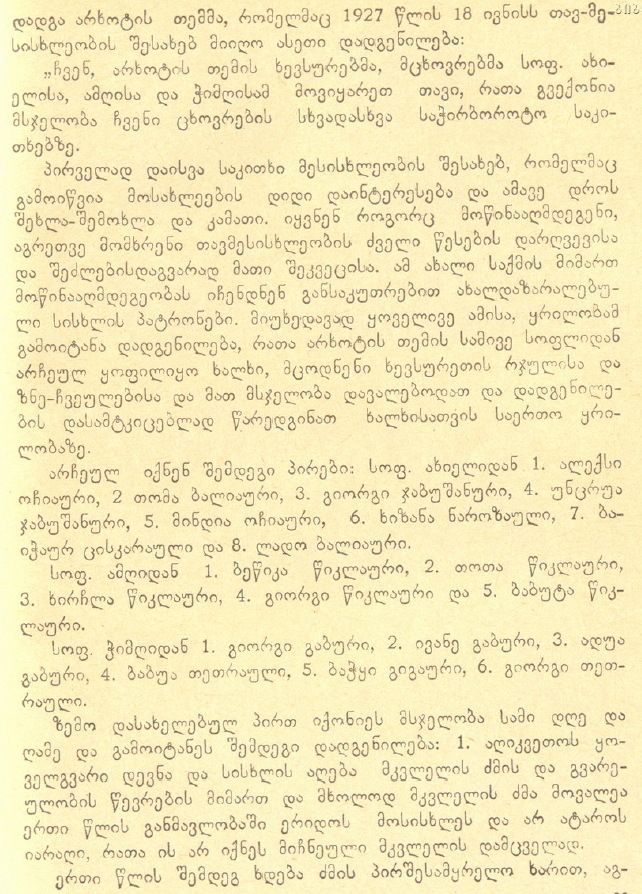 დადგა არხოტის თემმა, რომელმაც 1927 წლის 18 ივნისს თავ-მე-
სისხლეობის შესახებ მიიღო ასეთი დადგენილება:
„ჩვენ, არხოტის თემის ხევსურებმა, მცხოვრებმა სოფ. ახი-
ელისა, ამღისა და ჭიმღისამ მოვიყარეთ თავი, რათა გვექონია
მსჯელობა ჩვენი ცხოვრების სხვადასხვა საჭირბოროტო საკი-
თხებზე.
პირველად დაისვა საკითხი მესისხლეობის შესახებ, რომელმაც
გამოიწვია მოსახლეების დიდი დაინტერესება და ამავე დროს
შეხლა-შემოხლა და კამათი. იყვნენ როგორც მოწინააღმდეგენი,
აგრეთვე მომხრენი თავმესისხლეობის ძველი წესების დარღვევისა
და შეძლებისდაგვარად მათი შეკვეცისა. ამ ახალი საქმის მიმართ
მოწინააღმდეგეობას იჩენდნენ განსაკუთრებით ახალდაზარალებუ-
ლი სისხლის პატრონები. მიუხედავად ყოველივე ამისა, ყრილობამ
გამოიტანა დადგენილება, რათა არხოტის თემის სამივე სოფლიდან
არჩეულ ყოფილიყო ხალხი, მცოდნენი ხევსურეთის რჯულისა და
ზნე-ჩვეულებისა და მათ მსჯელობა დავალებოდათ და დადგენილე-
ბის დასამტკიცებლად წარედგინათ ხალხისათვის საერთო ყრი-
ლობაზე.
არჩეულ იქნენ შემდეგი პირები: სოფ. ახიელიდან 1. ალექსი
ოჩიაური, 2 თომა ბალიაური, 3. გიორგი ჯაბუშანური, 4. უნცრუა
ჯაბუშანური, 5. მინდია ოჩიაური, 6. ხიზანა ნაროზაული, 7. ბა-
იჭაურ ცისკარაული და 8. ლადო ბალიაური.
სოფ. ამღიდან 1. ბეწიკა წიკლაური, 2. თოთა წიკლაური,
3. ხირჩლა წიკლაური, 4. გიორგი წიკლაური და 5. ბაბუტა წიკ-
ლაური.
სოფ. ჭიმღიდან 1. გიორგი გაბური, 2. ივანე გაბური, 3. ადუა
გაბური, 4. ბაბუა თეთრაული, 5. ბაჭყი გიგაური, 6. გიორგი თეთ-
რაული.
ზემო დასახელებულ პირთ იქონიეს მსჯელობა სამი დღე და
ღამე და გამოიტანეს შემდეგი დადგენილება: 1. აღიკვეთოს ყო-
ველგვარი დევნა და სისხლის აღება მკვლელის ძმის და გვარე-
ულობის წევრების მიმართ და მხოლოდ მკვლელის ძმა მოვალეა
ერთი წლის განმავლობაში ერიდოს მოსისხლეს და არ ატაროს
იარაღი, რათა ის არ იქნეს მიჩნეული მკვლელის დამცველად.
ერთი წლის შემდეგ ხდება ძმის პირშესამყრელო ხარით, აგ-